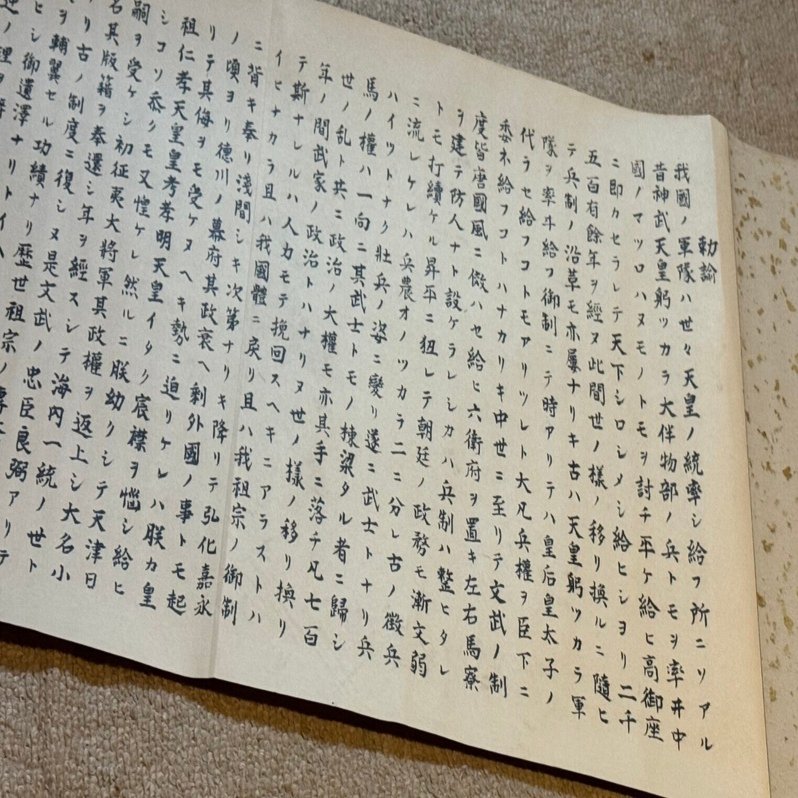 勅諭
我國ノ軍隊ハ世々天皇ノ統率シ給フ所ニソアル
昔神武天皇躬ツカラ大伴物部ノ兵トモヲ率ヰ中
國ノマツロハヌモノトモヲ討チ平ケ給ヒ高御座
ニ即カセラレテ天下シロシメシ給ヒシヨリ二千
五百有餘年ヲ經ヌ此間世ノ樣ノ移リ換ルニ隨ヒ
テ兵制ノ沿革モ亦屢ナリキ古ハ天皇躬ツカラ軍
隊ヲ率ヰ給フ御制ニテ時アリテハ皇后皇太子ノ
代ラセ給フコトモアリツレト大凡兵權ヲ臣下ニ
委ネ給フコトハナカリキ中世ニ至リテ文武ノ制
度皆唐國風ニ倣ハセ給ヒ六衛府ヲ置キ左右馬寮
ヲ建テ防人ナト設ケラレシカハ兵制ハ整ヒタレ
トモ打續ケル昇平ニ狃レテ朝廷ノ政務モ漸文弱
ニ流レケレハ兵農オノツカラ二ニ分レ古ノ徴兵
ハイツトナク壯兵ノ姿ニ變リ遂ニ武士トナリ兵
馬ノ權ハ一向ニ其武士トモノ棟梁タル者ニ歸シ
世ノ乱ト共ニ政治ノ大權モ亦其手ニ落チ凡七百
年ノ間武家ノ政治トハナリヌ世ノ樣ノ移リ換リ
テ斯ナレルハ人力モテ挽回スヘキニアラストハ
イヒナカラ且ハ我國體ニ戻リ且ハ我祖宗ノ御制
ニ背キ奉リ淺間シキ次第ナリキ降リテ弘化嘉永
ノ頃ヨリ徳川ノ幕府其政衰ヘ剰外國ノ事トモ起
リテ其侮ヲモ受ケヌヘキ勢ニ迫リケレハ朕カ皇
祖仁孝天皇皇考孝明天皇イタク宸襟ヲ惱シ給ヒ
シコソ忝クモ又惶ケレ然ルニ朕幼クシテ天津日
嗣ヲ受ケシ初征夷大將軍其政權ヲ返上シ大名小
名其版籍ヲ奉還シ年ヲ經スシテ海内一統ノ世ト
リ古ノ制度ニ復シヌ是文武ノ忠臣良弼アリテ
ヲ輔翼セル功績ナリ歴世祖宗ノ
ヒシ御遺澤ナリトイヘ
ノ理ヲ